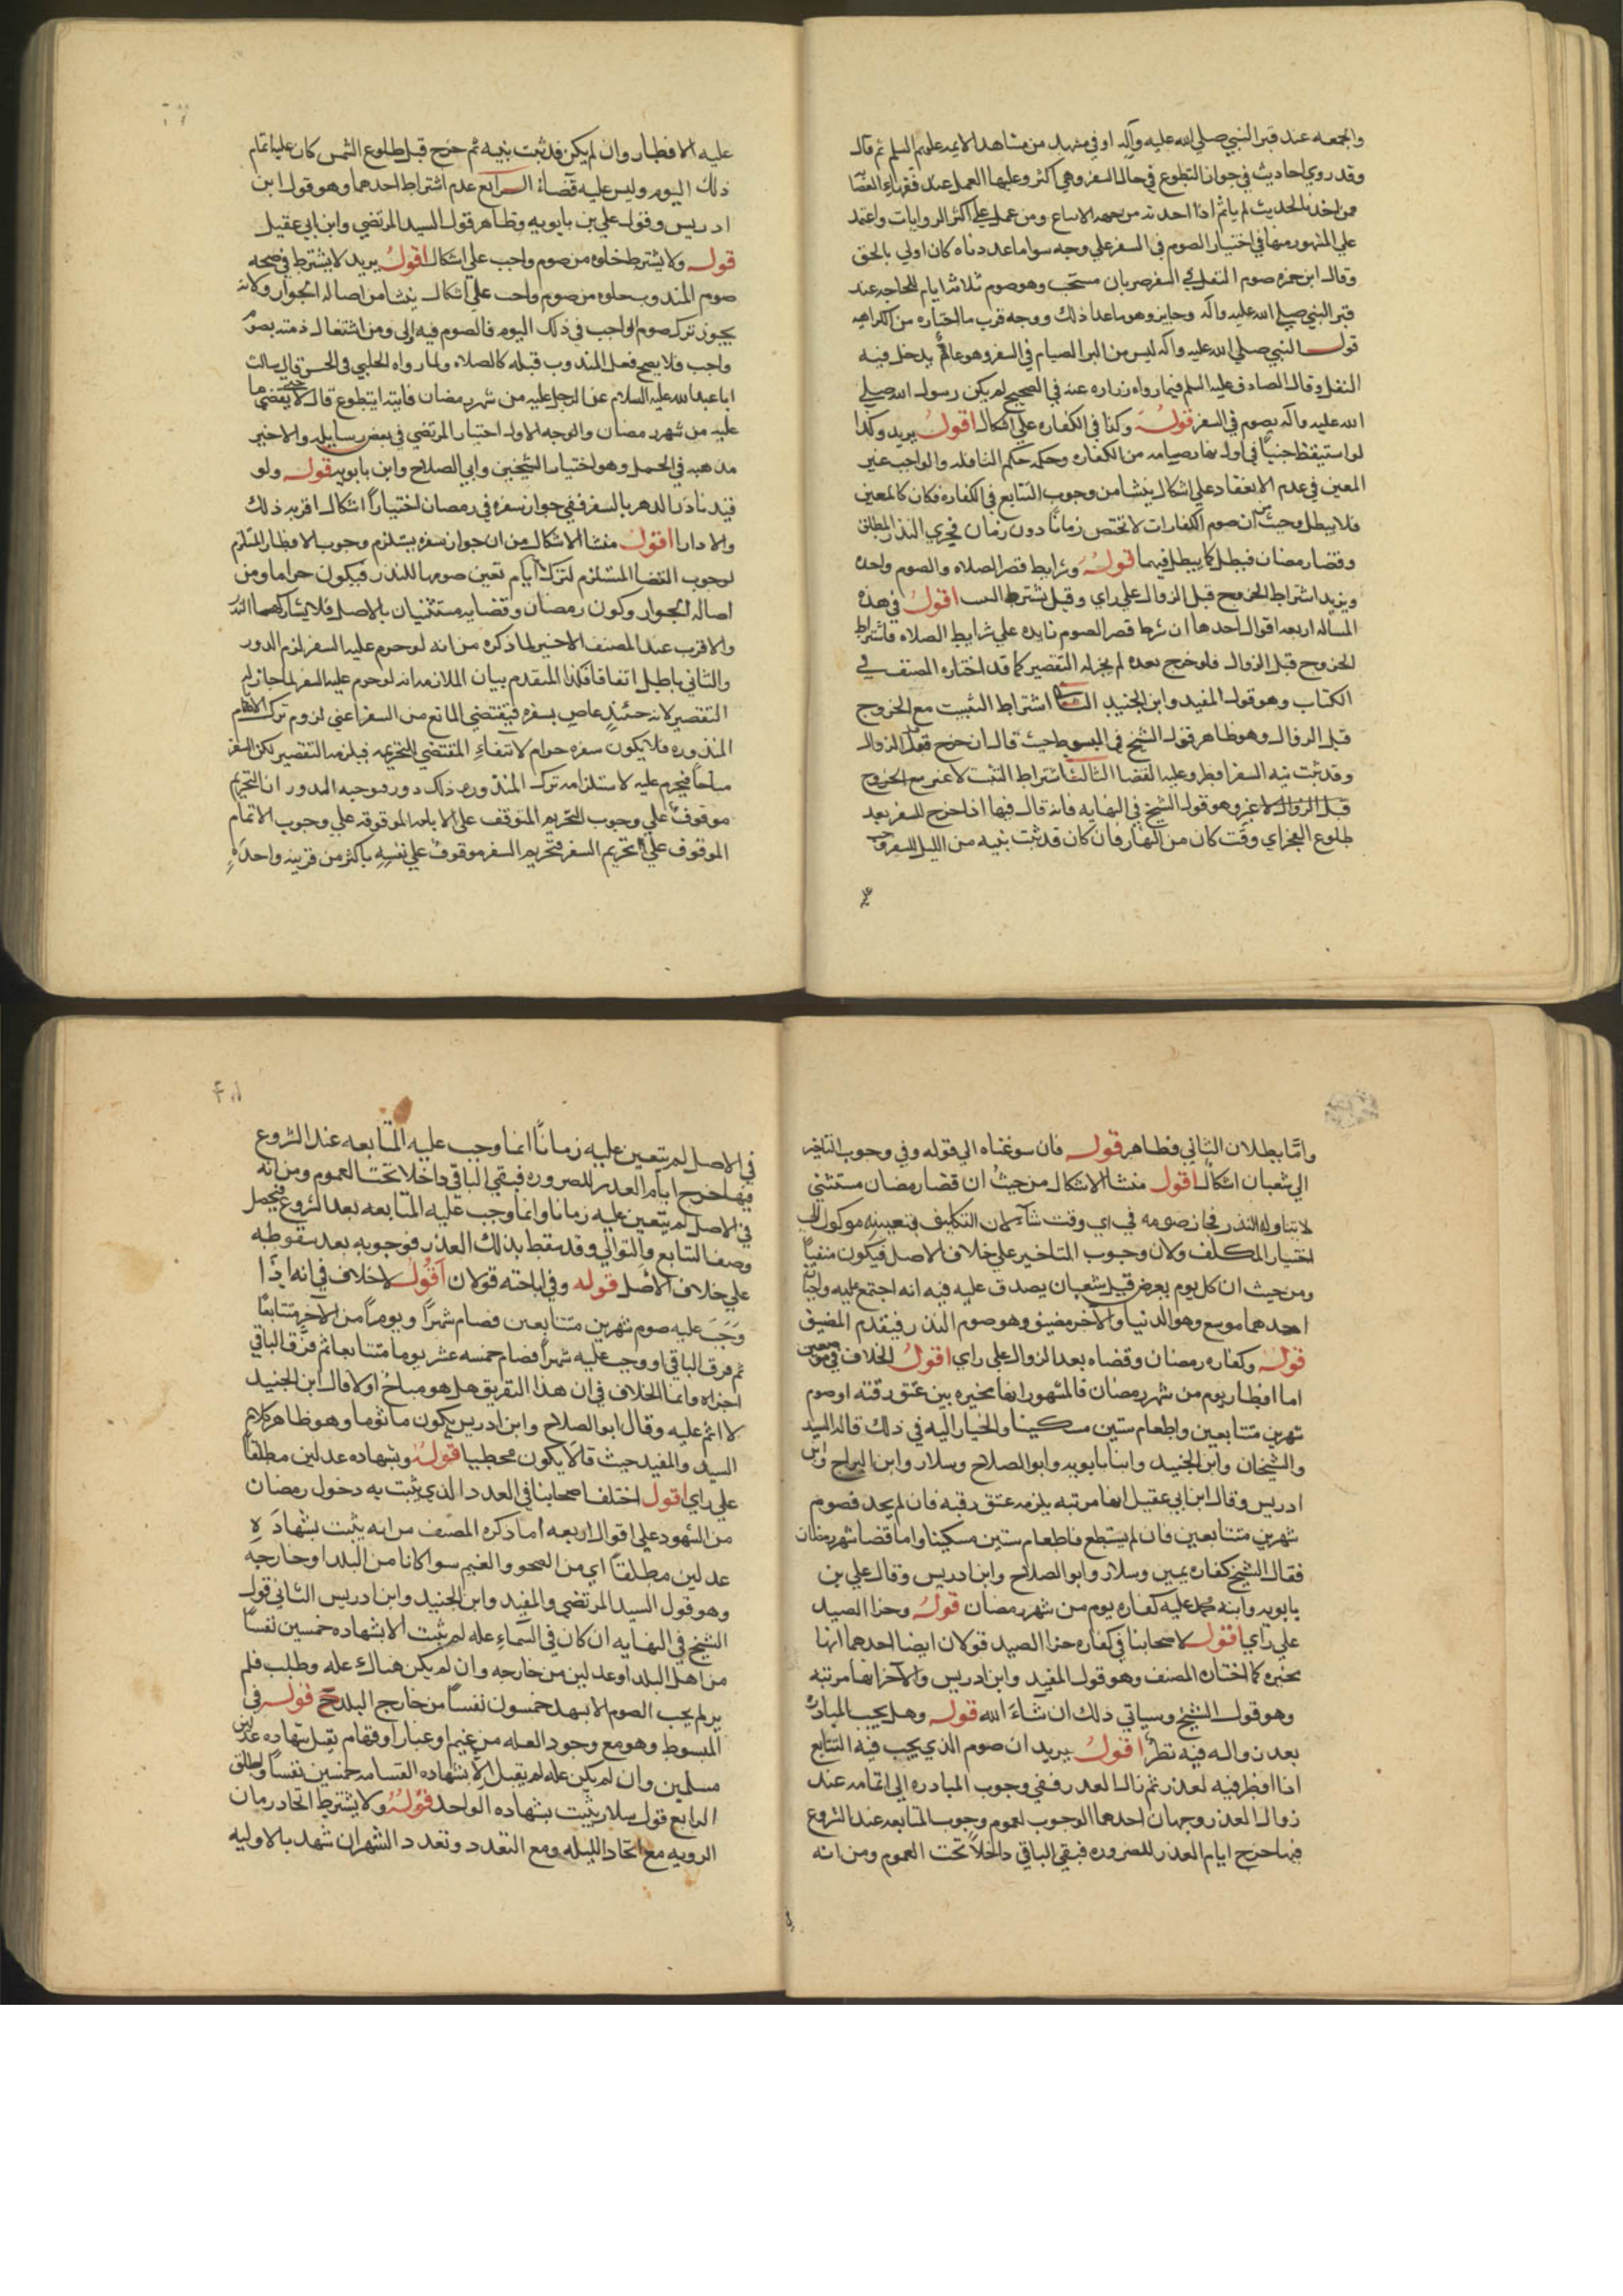 والجمعه عند قبر النبي صلي الله عليه وآله او في مشهد من مشاهد الايمه عليهم السلم ثم قال
وقد روي احاديث في جواز التطوع في حال السفر وهي اكثر وعليها العمل عند فقهاء
فمن اخذ بالحديث لم ياثم اذا اخذ به من جهه الاتباع ومن عمل علي اكثر الروايات واعتمد
علي المشهور منها في اختيار الصوم في السفر علي وجه سوا ما عددناه كان اولي بالحق
وقال ابن حمزه صوم النفل في السفر ضربان مستحب وهو صوم ثلاثه ايام للحاجه عند
قبر النبي صلي الله عليه واله وجايز وهو ما عدا ذلك ووجه قرب ما اختاره من الكراهيه
قول النبي صلي الله عليه واله ليس من البر الصيام في السفر وهو عام يدخل فيه
النفل وقال الصادق عليه السلم فيما رواه زراره عنه في الصحيح لم يكن رسول الله صلي
الله عليه واله يصوم في السفر قوله وكذا في الكفاره علي اشكال اقول يريد وكذا
لو استيقظ جنبا في اول نهار صيامه من الكفاره وحكمه حكم النافله والواجب غير
المعين في عدم الانعقاد علي اشكال ينشا من وجوب التتابع في الكفاره فكان كالمعين
فلا يبطل وحيث ان صوم الكفارات لا تختص زمانا دون زمان فجري النذر المطلق
وقضا رمضان فبطل كما يبطل فيهما قوله وشرايط قصر الصلاه والصوم واحده
ويزيد اشتراط الخروج قبل الزوال علي راي وقيل تشترط اقول في هذه
المساله اربعه اقوال احدها ان شرط قصر الصوم زايده علي شرايط الصلاه فاشتراط
الخروج قبل الزوال فلو خرج بعده لم يجز له التقصير كما قد اختاره المصنف في
الكتاب وهو قول المفيد وابن الجنيد الثاني اشتراط التبييت مع الخروج
قبل الزوال وهو ظاهر قول الشيخ في المبسوط حيث قال ان خرج قبل الزوال
وقد بيت نيه السفر افطر وعليه القضا الثالث اشتراط التبييت لا غير مع الخروج
قبل الزوال لا غير وهو قول الشيخ في النهايه فانه قال فيها اذا خرج للسفر بعد
طلوع الفجر اي وقت كان من النهار فان كان قد بيت نيه من الليل للسفر
عليه الافطار وان لم يكن قد بيت نيه ثم خرج قبل طلوع الشمس كان عليه اتمام
ذلك اليوم وليس عليه قضاء الرابع عدم اشتراط احدهما وهو قول ابن
ادريس وقول علي بن بابويه وظاهر قول السيد المرتضي وابن ابي عقيل
قوله ولا يشترط خلوه من صوم واجب علي اشكال اقول يريد لا يشترط في صحه
صوم المندوب خلوه من صوم واجب علي اشكال ينشا من اصاله الجواز ولانه
يجوز ترك صوم الواجب في ذلك اليوم فالصوم فيه اولي ومن اشتغال ذمته بصوم
واجب فلا يصح فعل المندوب قبله كالصلاه ولما رواه الحلبي في الحسن قال سالت
ابا عبد الله عليه السلام عن الرجل عليه من شهر رمضان فايته ايتطوع قال لا حتي يقضي ما
عليه من شهر رمضان والوجه الاول اختيار المرتضي في بعض رسايله والاخير
مذهبه في الجمل وهو اختيار الشيخين وابي الصلاح وابن بابويه قوله ولو
قيد نادر الدهر بالسفر ففي جواز سفره في رمضان اختيارا اشكال اقربه ذلك
والا دار اقول منشا الاشكال من ان جواز سفره يستلزم وجوب الافطار المستلزم
لوجوب القضا المستلزم لترك ايام تعين صومها للنذر فيكون حراما ومن
اصاله الجواز وكون رمضان وقضايه مستثنيان بالاصل فلا يشاركهما النذر
والاقرب عند المصنف الاخير لما ذكره من انه لو حرم عليه السفر لزم الدور
والثاني باطل اتفاقا فكذا المتقدم بيان الملازمه انه لو حرم عليه السفر لما جاز له
التقصير لانه حينئذ عاص بسفره فيقتضي المانع من السفر اعني لزوم ترك الايام
المنذوره فلا يكون سفره حرام لانتفاء المقتضي لتحريمه فيلزمه التقصير لكن السفر
مباحا فيحرم عليه لاستلزامه ترك المنذوره وذلك دور فوجبه المدور ان التحريم
موقوف علي وجوب التحريم المتوقف علي الاباحه الموقوفه علي وجوب الاتمام
الموقوف علي تحريم السفر فتحريم السفر موقوف علي نفسه باكثر من قرينه واحده
وامّا بطلان الثاني فظاهر قوله فان سوغناه الي قوله وفي وجوب التاخير
الي شعبان اشكال اقول منشا الاشكال من حيث ان قضا رمضان مستثني
لا يتناوله النذر فجاز صومه في اي وقت شاء لان التكليف في تعيينه موكول الي
اختيار المكلف ولان وجوب التاخير علي خلاف الاصل فيكون منفيا
ومن حيث ان كل يوم يعرض قبل شعبان يصدق عليه فيه انه اجتمع عليه واجبان
احدهما موسع وهو الدنيا والاخر مضيق وهو صوم النذر فيقدم المضيق
قوله وكفاره رمضان وقضاه بعد الزوال علي راي اقول الخلاف في موضعين
اما افطار يوم من شهر رمضان فالمشهور انها مخيره بين عتق رقبه او صوم
شهرين متتابعين واطعام ستين مسكينا والخيار اليه في ذلك قاله السيد
والشيخان وابن الجنيد وابنا بابويه وابو الصلاح وسلار وابن البراج وابن
ادريس وقال ابن ابي عقيل انها مرتبه يلزمه عتق رقبه فان لم يجد فصوم
شهرين متتابعين فان لم يستطع فاطعام ستين مسكينا واما قضا شهر رمضان
فقال الشيخ كفاره يمين وسلار وابو الصلاح وابن ادريس وقال علي بن
بابويه وابنه محمد عليه كفاره يوم من شهر رمضان قوله وجزا الصيد
علي راي اقول لاصحابنا في كفاره جزا الصيد قولان ايضا احدهما انها
مخيره كما اختاره المصنف وهو قول المفيد وابن ادريس والاخر انها مرتبه
وهو قول الشيخ وسياتي ذلك ان شاء الله قوله وهل يجب المبادره
بعد زواله فيه نظر اقول يريد ان صوم الذي يجب فيه التتابع
اذا افطر فيه لعذر ثم زال العذر ففي وجوب المبادره الي اتمامه عند
زوال العذر وجهان احدهما الوجوب لعموم وجوب المتابعه عند الشروع
فيها خرج ايام العذر للضروره فبقي الباقي داخلا تحت العموم ومن انه
في الاصل لم يتعين عليه زمانا انما وجب عليه المتابعه عند الشروع
فيها خرج ايام العذر للضروره فبقي الباقي داخلا تحت العموم ومن انه
في الاصل لم يتعين عليه زمانا وانما وجب عليه المتابعه بعد الشروع فيحصل
وصف التتابع والتوالي وقد سقط بذلك العذر فوجوبه بعد سقوطه
علي خلاف الاصل قوله وفي اباحته قولان اقول لا خلاف في انه اذا
وجب عليه صوم شهرين متتابعين فصام شهرا ويوما من الاخر متتابعا
ثم فرق الباقي او وجب عليه شهرا فصام خمسه عشر يوما متتابعا ثم فرق الباقي
اجزاه وانما الخلاف في ان هذا التفريق هل هو مباح اولا قال ابن الجنيد
لا اثم عليه وقال ابو الصلاح وابن ادريس يكون ماثوما وهو ظاهر كلام
السيد والمفيد حيث قالا يكون مخطيا قوله وبشهاده عدلين مطلقا
علي راي اقول اختلف اصحابنا في العدد الذي يثبت به دخول رمضان
من الشهود علي اقوال اربعه ا ما ذكره المصنف من انه يثبت بشهاده
عدلين مطلقا اي من الصحو والغيم سوا كانا من البلد او خارجه
وهو قول السيد المرتضي والمفيد وابن الجنيد وابن ادريس الثاني قول
الشيخ في النهايه ان كان في السماء عله لم يثبت الا بشهاده خمسين نفسا
من اهل البلد او عدلين من خارجه وان لم يكن هناك عله وطلب فلم
ير لم يجب الصوم الا بشهد خمسون نفسا من خارج البلد ج قوله في
المبسوط وهو مع وجود العله من غيم او غبار او قتام يقبل شهاده عدلين
مسلمين وان لم يكن عله لم يقبل الا بشهاده القسامه خمسين نفسا واطلق
الرابع قول سلار يثبت بشهاده الواحد قوله ولا يشترط اتحاد زمان
الرويه مع اتحاد الليله ومع التعدد وتعدد الشهران شهد بالاوليه